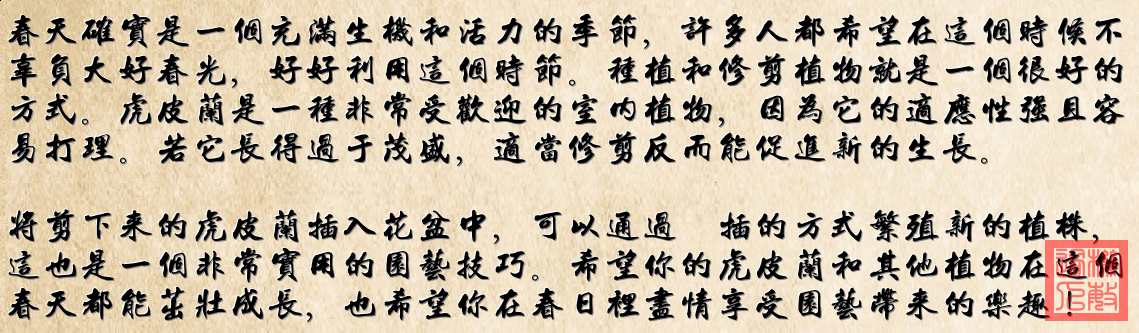 春天確實是一個充滿生機和活力的季節，許多人都希望在這個時候不
辜負大好春光，好好利用這個時節。種植和修剪植物就是一個很好的
方式。虎皮蘭是一種非常受歡迎的室內植物，因為它的適應性強且容
易打理。若它長得過于茂盛，適當修剪反而能促進新的生長。
將剪下來的虎皮蘭插入花盆中，可以通過 插的方式繁殖新的植株，
這也是一個非常實用的園藝技巧。希望你的虎皮蘭和其他植物在這個
春天都能茁壯成長，也希望你在春日裡盡情享受園藝帶來的樂趣！